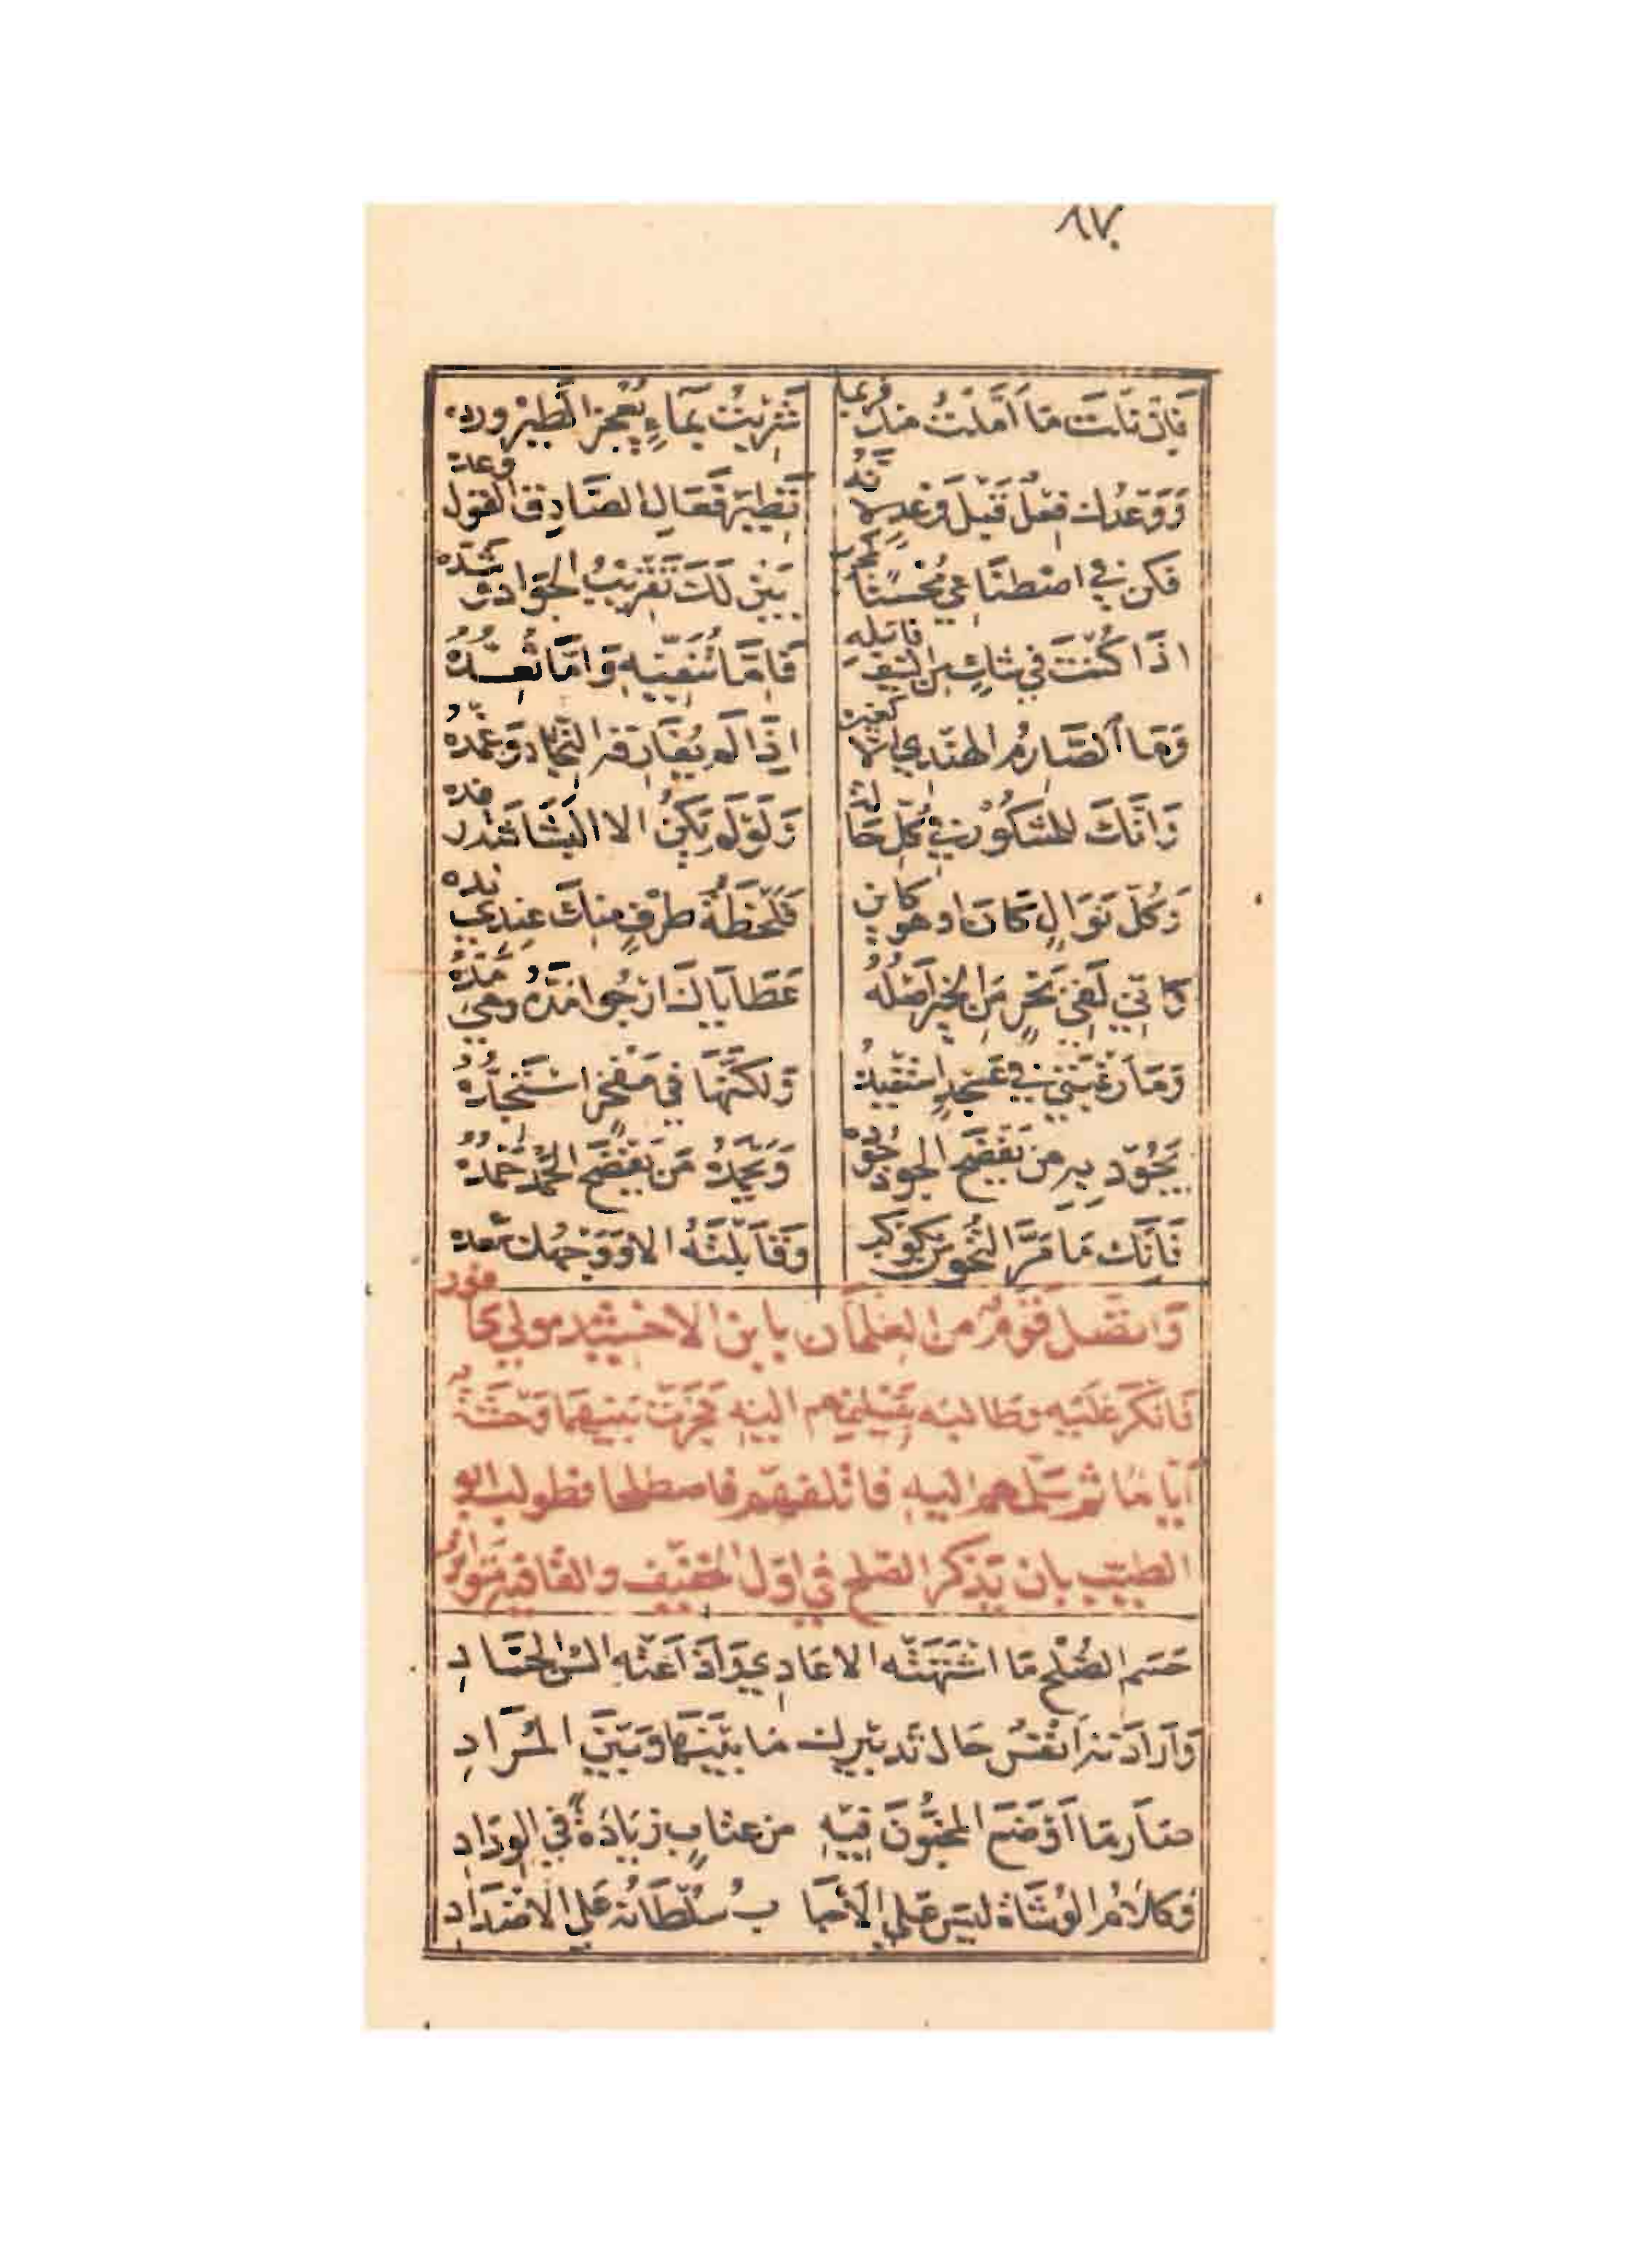 ٨٧
فَاِنْ نِلْتَ مَا اَمَّلْتُ منك فربما شَرِبْتُ بِمَاءٍ يُعْجِزُ الطَيْرَ ورده
وَوَعْدُك فِعْلٌ قَبْلَ وَعْدٍ لانه نَظِيرُ فَعَالِ الصَادِقِ القول وعده
فكن في اصْطِنَاعِي مُحْسِنًا كمجرب يَبِنْ لَكَ تَقْرِيبُ الجَوادِ وشده
اذَا كُنْتَ فِي شَكٍ من السَيْفِ فابله فَاِمَّا تُنَفِّيهِ وَاِمَّا تُعِدُّهُ
وَمَا الصَّارِمُ الهندي الا كغيره اِذَا لَم يُفَارِقه النِّجَاد وَغِمْدُهُ
وَاِنَّكَ للمَشْكُورُ فِي كُلِّ حَالة وَلَوْ لَم يَكُنْ الا البَشَاشة رفده
وَكُلّ نَوَالٍ كَانَ او هو كائن فَلَحْظَةُ طَرْفٍ منك عِنْدِي نده
وَاِنِّي لَفِي بَحْرٍ مِنَ الخيرِ اَصْلُهُ عَطَايَاك اَرْجُوا مَدَّهُ وهي مَدُّهُ
وَمَا رَغْبَتِي فِي عَسْجَدٍ استفيده وَلَكِنَّهَا فِي مَفْخَرٍ اسْتَجِدُّهُ
يَجُوْد بِهِ من يَفْضَحُ الجود جوده وَيَحْمَدُهُ مَن يَفْضَحُ الحَمْدَ حَمْدُهُ
فَاِنَّك مَا مَرَّ النُّحُوسُ بكوكب وَقَابَلْتَهُ الا وَوَجْهُك سعده
وَاتصَل قَوْمٌ من الغِلمان بابن الاخشيد مولي كافور
فَانكَرَ عَلَيْهِ وطالبه بتَسْلِيمهم اليه فَجَرَتْ بَيْنهمَا وَحْشَةٌ
اَيَّامًا ثم سَلَّمهم اليه فاتلفهم فاصطلحا فطولب ابو
الطيب بان يَذكر الصلح فِي اوّل الخفيف والقافية متواتر
حَسَم الصُلْح مَا اشْتَهَتْهُ الاعَادِي وَاَذَاعَتْهُ السُن الحسَادِ
وَاَرَادَته اَنْفُسٌ حَالَ تَدبيرك مَا بَيْنَهَا وَبَيْنَ المُرَادِ
صَارَ مَا اَوْضَعَ المُخِبُّونَ فِيْهِ من عتابٍ زيَادَةً فِي الوِدَادِ
وَكَلَامُ الوُشَاة لَيْسَ عَلي الاحبَا بِ سُلْطَانُه عَلي الاضْدَادِ